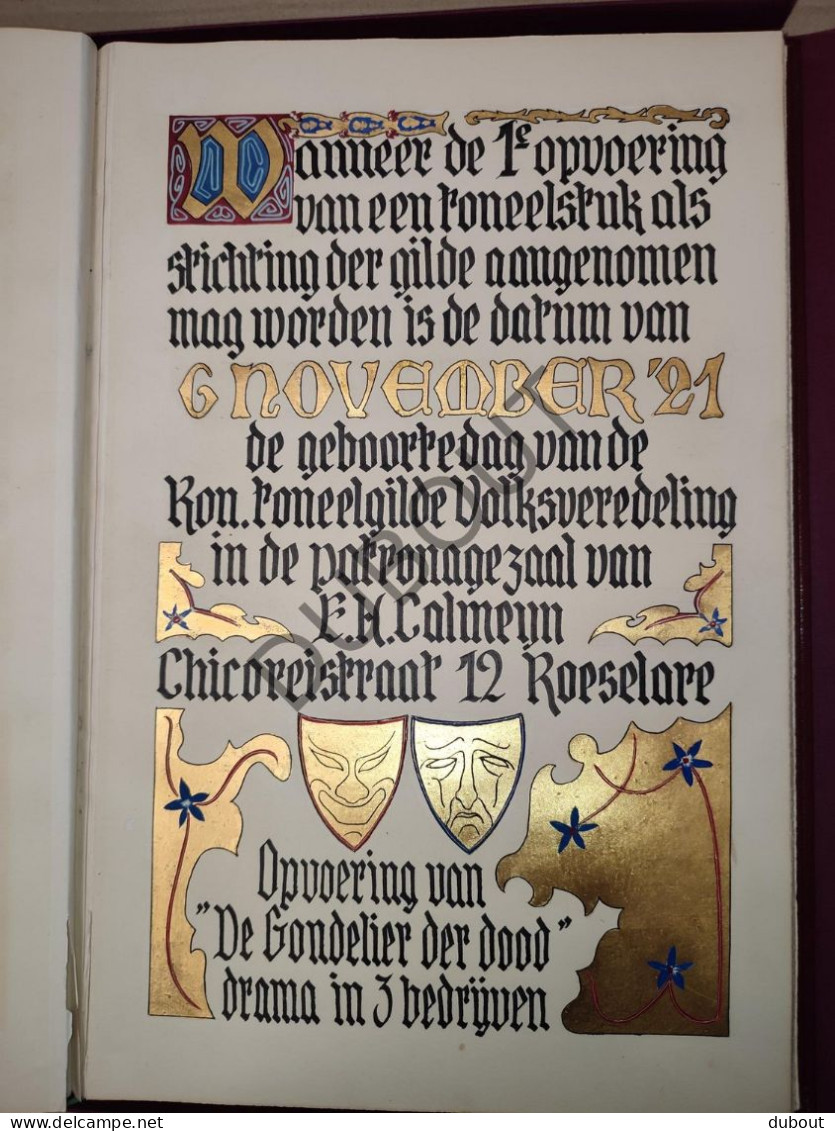 Wanneer de 1e opvoering
van een toneelstuk als
stichting der gilde aangenomen
mag worden is de datum van
6 NOVEMBER '21
de geboortedag van de
Kon. toneelgilde Volksveredeling
in de patronagezaal van
E.H. Calmeyn
Chicoreistraat 12 Roeselare
Opvoering van
"De Gondelier der dood"
drama in 3 bedrijven
DUBOUT
delcampe.net
dubout